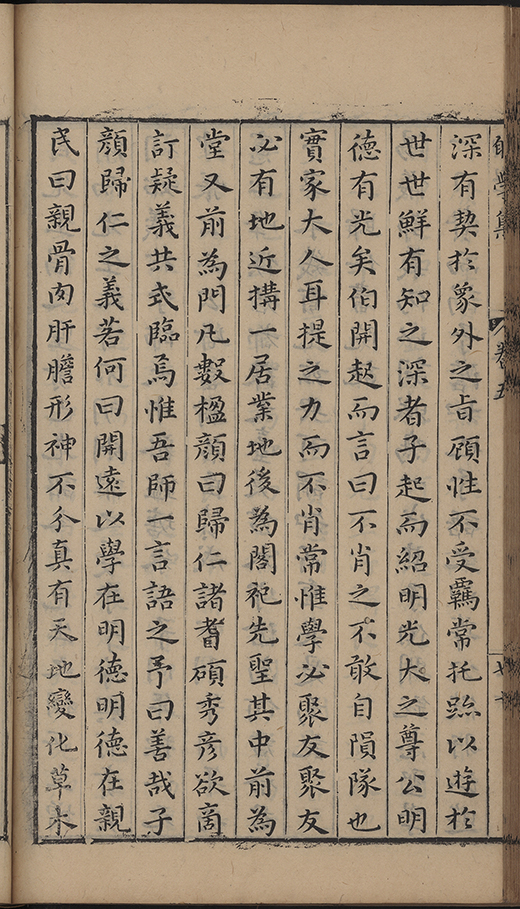 學集 卷五
深有契於象外之旨顧性不受羈常托跡以遊於
世世鮮有知之深者子起而紹明光大之尊公明
德有光矣伯開起而言曰不肖之不敢自隕隊也
實家大人耳提之力而不肖常惟學必聚友聚友
必有地近搆一居業地後為閣祀先聖其中前為
堂又前為門凡數楹顏曰歸仁諸耆碩秀彥欲商
訂疑義共式臨焉惟吾師一言語之予曰善哉子
顏歸仁之義若何曰開遠以學在明德明德在親
民曰親骨肉肝膽形神不分真有天地變化草木